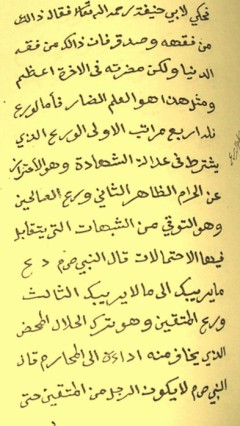 فحكي لابي حنيفة رحمه الله تعالى فقال ذالك
من فقهه وصدق فان ذالك من فقه
الدنيا ولكن مضرته فى الاخرة اعظم
ومثل هذا هو العلم الضار فأما الورع
فله اربع مراتب الاولى الورع الذي
يشترط فى عدالة الشهادة وهو الاحتراز
عن الحرام الظاهر الثاني ورع الصالحين
وهو التوقي من الشبهات التي يتقابل
فيها الاحتمالات قال النبي صم دع
ما يريبك الى مالا يريبك الثالث
ورع المتقين وهو ترك الحلال المحض
الذي يخاف منه اداءه الى المحارم قال
النبي صم لا يكون الرجل من المتقين حتى